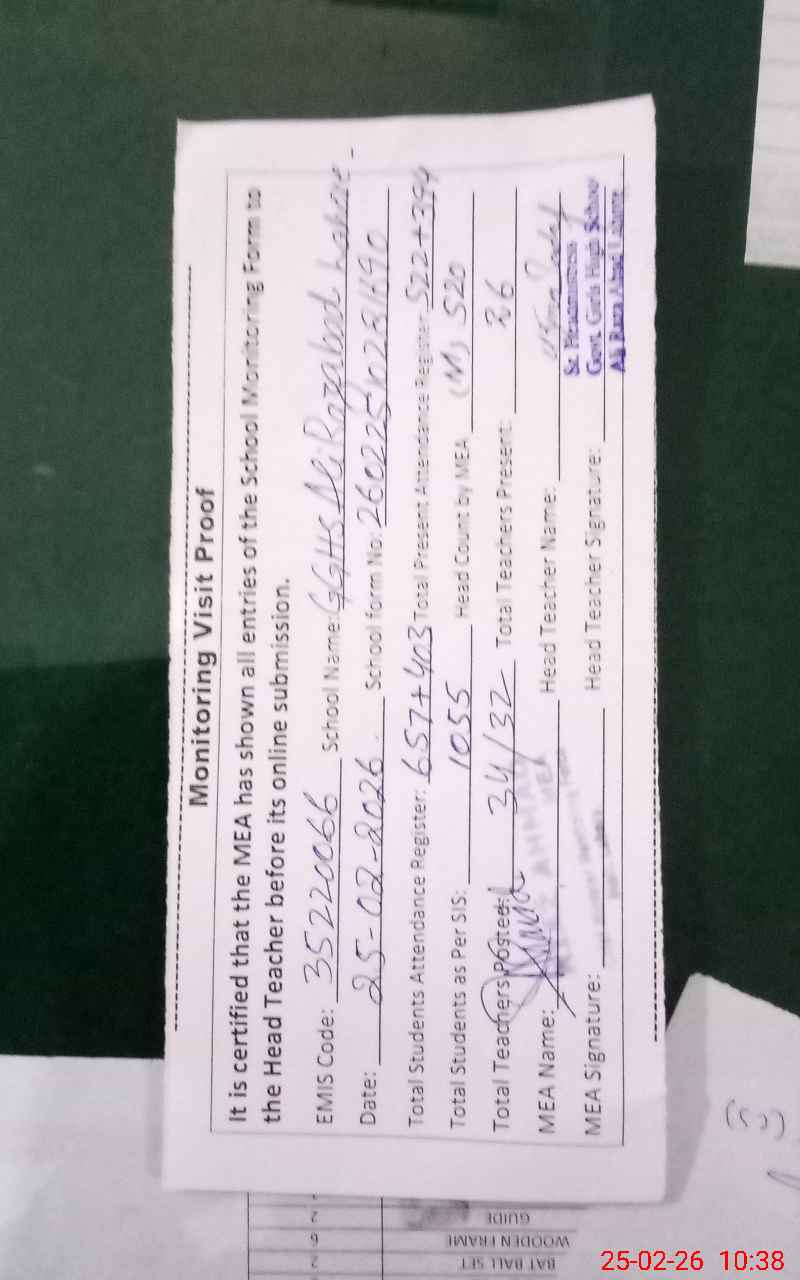 Monitoring Visit Proof
It is certified that the MEA has shown all entries of the School Monitoring Form to
the Head Teacher before its online submission.
EMIS Code: 35220066 School Name: GGHS Ali Razabad Lahore
Date: 25-02-2026 School form No:
Total Students Attendance Register: 657+403 Total Present Attendance Register: 522+394
Total Students as Per SIS: 1055 Head Count by MEA (M) 520
Total Teachers Posted: 34/32 Total Teachers Present: 26
MEA Name: Head Teacher Name:
MEA Signature: Head Teacher Signature:
Sr. Headmistress
Govt. Girls High School
Ali Raza Abad Lahore
MEA
BAT BALL SET 2
WOODEN FRAME 6
GUIDE 2
25-02-26 10:38